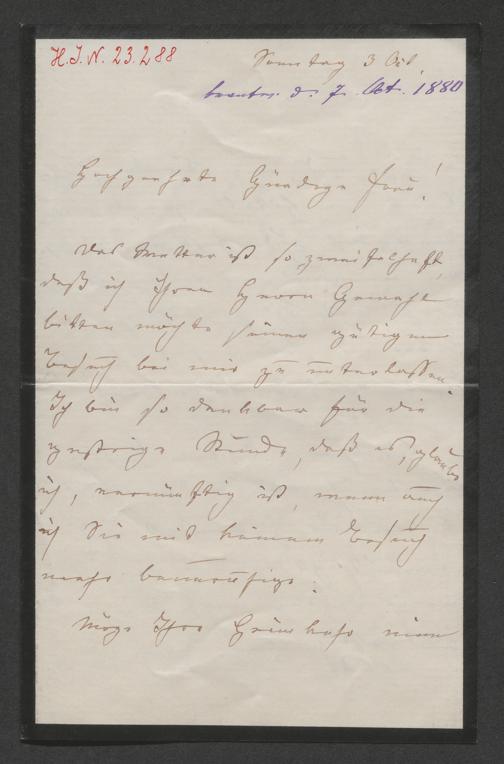 H.I.N. 23.288
Sonntag 3 Okt.
beantw. d. 7. Okt. 1880
Hochgeehrte Gnädige Frau!
Das Wetter ist so zweifelhaft,
daß ich Ihren Herrn Gemahl
bitten möchte seinen gütigen
Besuch bei mir zu unterlassen.
Ich bin so dankbar für die
gestrige Stunde, daß es, glaube
ich, vernünftig ist, wenn auch
ich Sie mit keinem Besuch
mehr beunruhige.
Möge Ihre Heimkehr eine